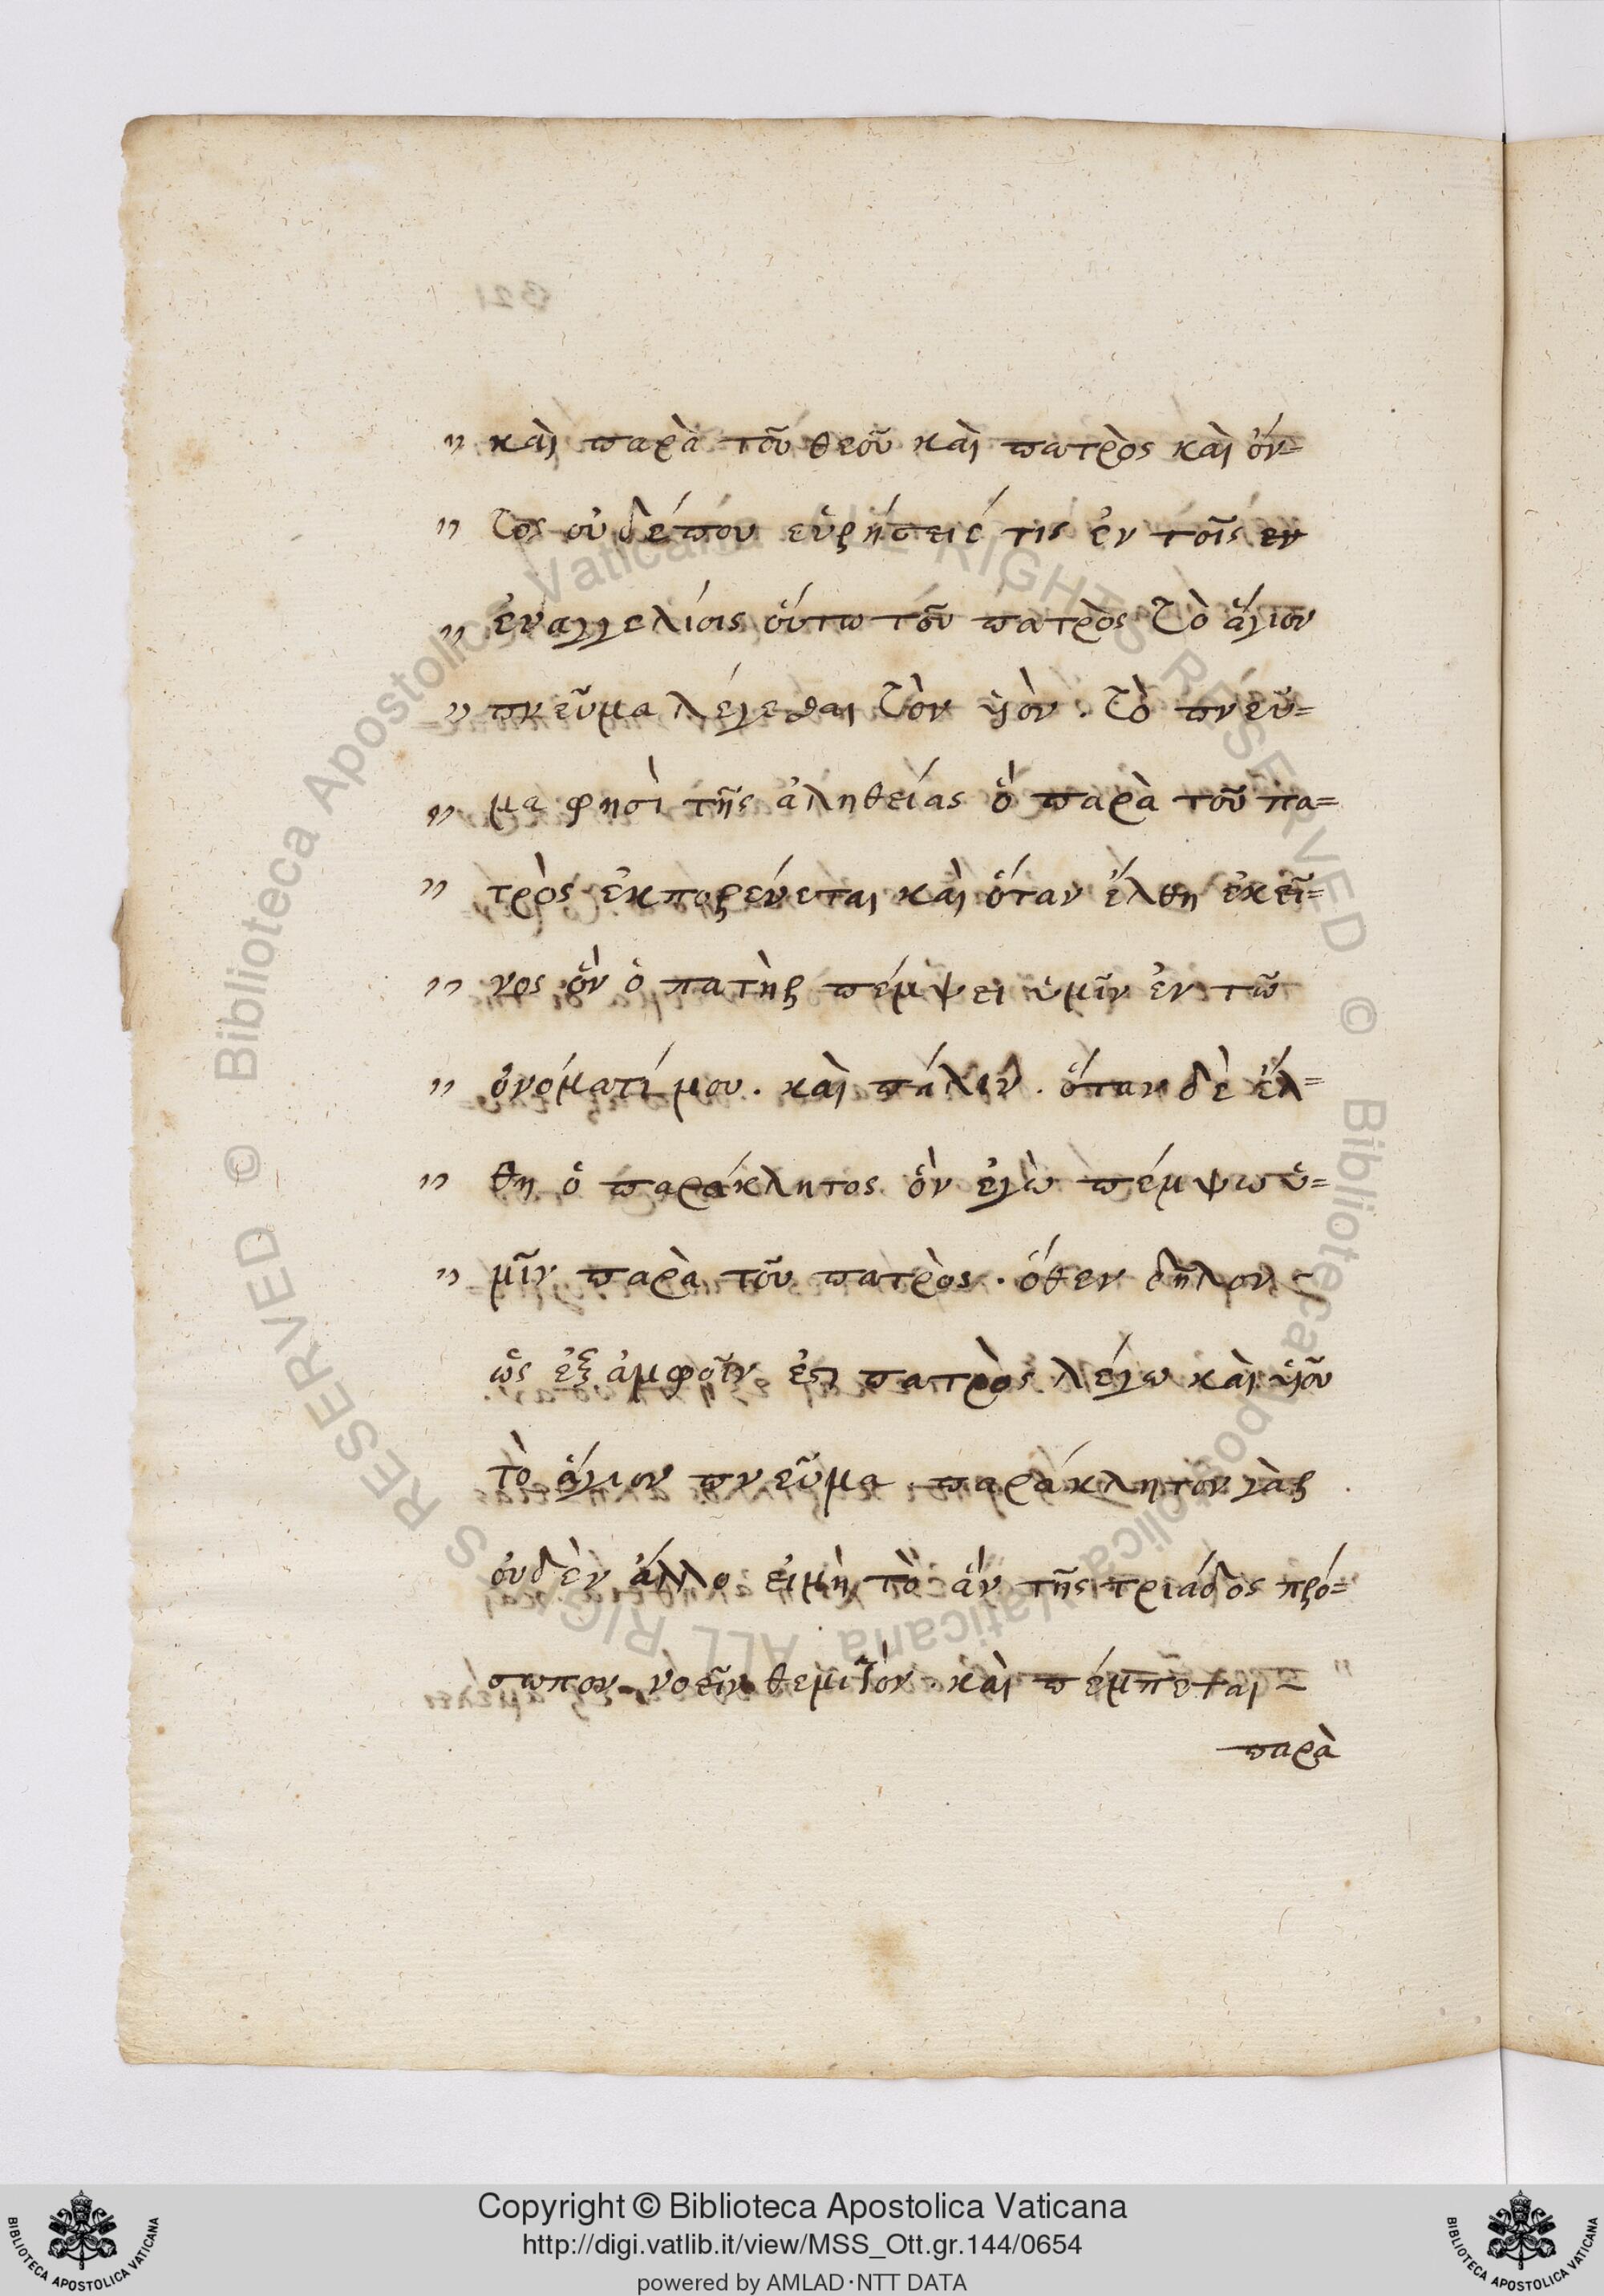 " καὶ παρὰ τοῦ θεοῦ καὶ πατρὸς καὶ ὄν=
" τος οὐδέπου εὑρήσειέ τις ἐν τοῖς εν
" ἐυαγγελίοις ὅυτω τοῦ πατρὸς τὸ ἅγιον
" πνεῦμα λέγεσθαι τὸν ὑιὸν. τὸ πνεῦ=
" μα φησὶ τῆς ἀληθείας ὅ παρὰ τοῦ πα=
" τρὸς ἐκπορεύεται καὶ ὅταν ἔλθη ἐκεῖ=
" νος ὃν ὁ πατὴρ πέμψει ὑμῖν ἐν τῶ
" ὀνόματί μου. καὶ πάλιν. ὅταν δὲ ἔλ=
" θη ὁ παράκλητος ὃν ἐγὼ πέμψω ὑ=
" μῖν παρὰ τοῦ πατρὸς. ὅθεν δῆλον
ὡς ἐξ ἀμφοῖν ἐστι πατρὸς λέγω καὶ ὑιοῦ
τὸ ἅγιον πνεῦμα. παράκλητον γὰρ
ὀυδὲν ἄλλο ἐιμὴ τὸ ἂν τῆς τριάδος πρό=
σωπον νοεῖν θεμιτὸν. καὶ πέμπεται
παρὰ
321
Biblioteca Apostolica Vaticana ALL RIGHTS RESERVED © Biblioteca Apostolica Vaticana ALL RIGHTS RESERVED ©
Copyright © Biblioteca Apostolica Vaticana
http://digi.vatlib.it/view/MSS_Ott.gr.144/0654
powered by AMLAD·NTT DATA
BIBLIOTECA APOSTOLICA VATICANA
BIBLIOTECA APOSTOLICA VATICANA